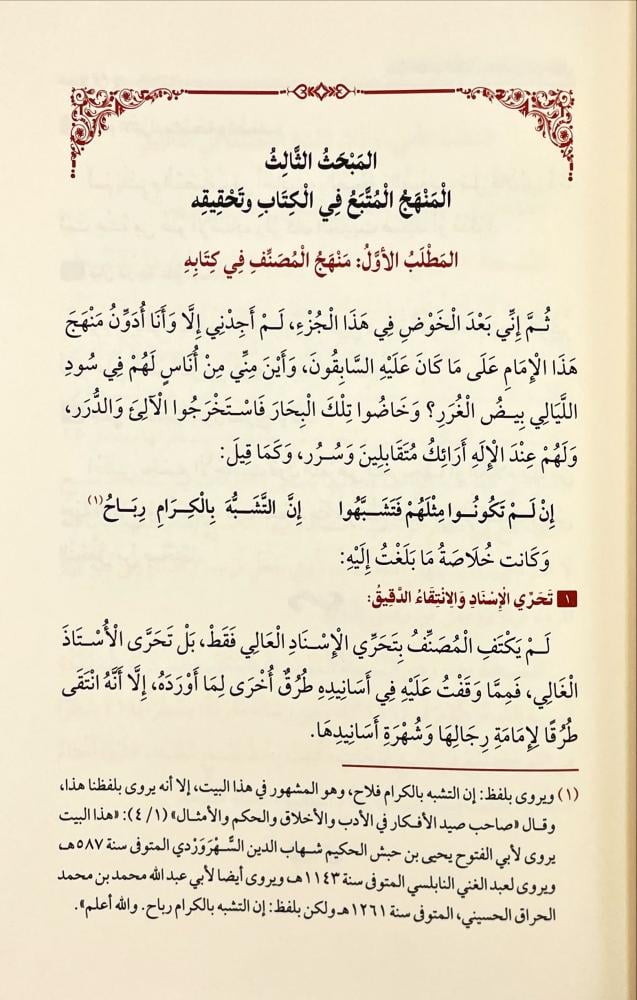 المَبْحَثُ الثَّالِثُ
الْمَنْهَجُ الْمُتَّبَعُ فِي الْكِتَابِ وتَحْقِيقِه
المَطْلَبُ الأوَّلُ: مَنْهَجُ الْمُصَنِّفِ فِي كِتَابِهِ
ثُمَّ إِنِّي بَعْدَ الْخَوْضِ فِي هَذَا الْجُزْءِ، لَمْ أَجِدْنِي إِلَّا وَأَنَا أُدَوِّنُ مَنْهَجَ
هَذَا الْإِمَامِ عَلَى مَا كَانَ عَلَيْهِ السَّابِقُونَ، وَأَيْنَ مِنِّي مِنْ أُنَاسٍ لَهُمْ فِي سُودِ
اللَّيَالِي بِيضُ الْغُرَرِ؟ وَخَاضُوا تِلْكَ الْبِحَارَ فَاسْتَخْرَجُوا الْآلِئَ وَالدُّرَرَ،
وَلَهُمْ عِنْدَ الْإِلَهِ أَرَائِكُ مُتَقَابِلِينَ وَسُرُر، وَكَمَا قِيلَ:
إِنْ لَمْ تَكُونُوا مِثْلَهُمْ فَتَشَبَّهُوا إِنَّ التَّشَبُّهَ بِالْكِرَامِ رِبَاحُ(١)
وَكَانت خُلَاصَةُ مَا بَلَغْتُ إِلَيْهِ:
١ تَحَرِّي الْإِسْنَادِ وَالِانْتِقَاءُ الدَّقِيقُ:
لَمْ يَكْتَفِ الْمُصَنِّفُ بِتَحَرِّي الْإِسْنَادِ العَالِي فَقَطْ، بَلْ تَحَرَّى الْأُسْتَاذَ
الْغَالِي، فَمِمَّا وَقَفْتُ عَلَيْهِ فِي أَسَانِيدِهِ طُرُقٌ أُخْرَى لِمَا أَوْرَدَهُ، إِلَّا أَنَّهُ انْتَقَى
طُرُقًا لِإِمَامَةِ رِجَالِهَا وَشُهْرَةِ أَسَانِيدِهَا.
(١) ويروى بلفظ: إن التشبه بالكرام فلاح، وهو المشهور في هذا البيت، إلا أنه يروى بلفظنا هذا،
وقال «صاحب صيد الأفكار في الأدب والأخلاق والحكم والأمثال» (١/ ٤): «هذا البيت
يروى لأبي الفتوح يحيى بن حبش الحكيم شهاب الدين السَّهْرَوَرْدي المتوفى سنة ٥٨٧هـ،
ويروى لعبد الغني النابلسي المتوفى سنة ١١٤٣هـ، ويروى أيضا لأبي عبد الله محمد بن محمد
الحراق الحسيني، المتوفى سنة ١٢٦١هـ ولكن بلفظ: إن التشبه بالكرام رباح. والله أعلم».